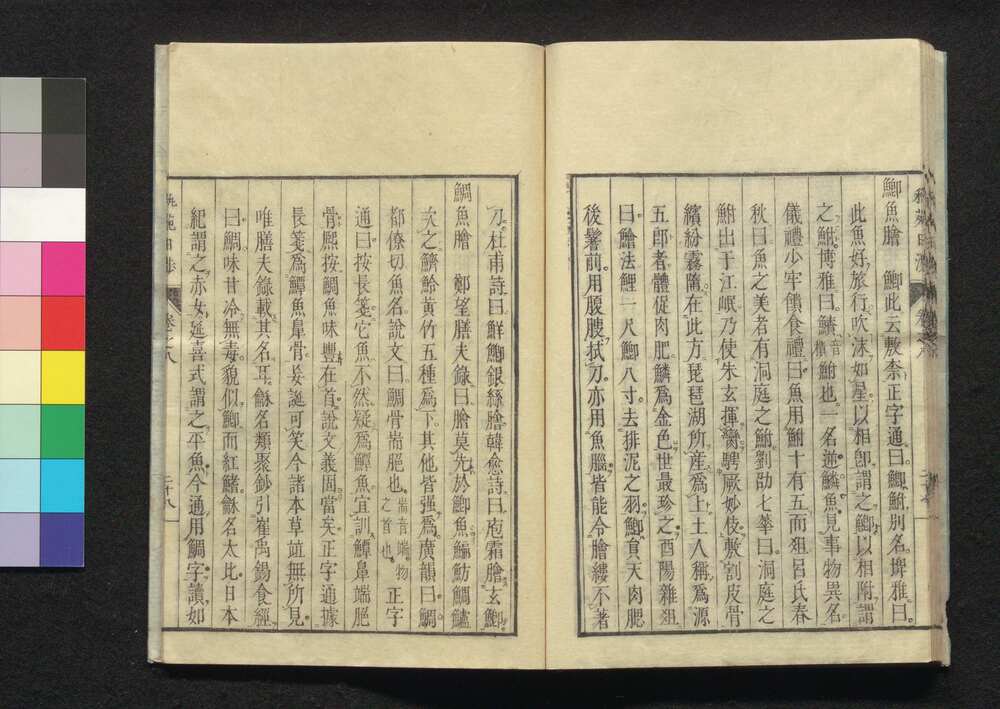 鯽魚膾　鯽此云敷奈正字通曰鯽鮒別名埤雅曰
此魚好旅行吹沫如星以相即謂之鯽以相附謂
之鮒博雅曰鰿音積鮒也一名逆鱗魚見事物異名
儀禮少牢饋食禮曰魚用鮒十有五而俎呂氏春
秋曰魚之美者有洞庭之鮒劉劭七華曰洞庭之
鮒出于江岷乃使朱玄揮鸞騁厥妙技敷割皮骨
繽紛霧隋在此方琵琶湖所產爲上土人稱爲源
五郎者體促肉肥鱗爲金色世最珍之酉陽雜俎
曰鱠法鯉一尺鯽八寸去排泥之羽鯽員天肉肥
後鬐前用腹腴拭刀亦用魚腦皆能令膾縷不著
刀杜甫詩曰鮮鯽銀絲膾韓愈詩曰庖霜膾玄鯽
鯛魚膾　鄭望膳夫錄曰膾莫先於鯽魚鯿魴鯛鱸
次之鱭鮯黃竹五種爲下其他皆强爲廣韻曰鯛
都僚切魚名說文曰鯛骨耑脃也耑音端物之首也正字
通曰按長箋它魚不然疑爲鱏魚宜訓鱏鼻端脃
骨熙按鯛魚味豐在首說文義固當矣正字通據
長箋爲鱏魚鼻骨妄誕可笑今諸本草竝無所見
唯膳夫錄載其名耳龢名類聚鈔引崔禹錫食經
曰鯛味甘冷無毒貌似鯽而紅鰭龢名太比日本
紀謂之赤女延喜式謂之平魚今通用鯛字讀如
二十八